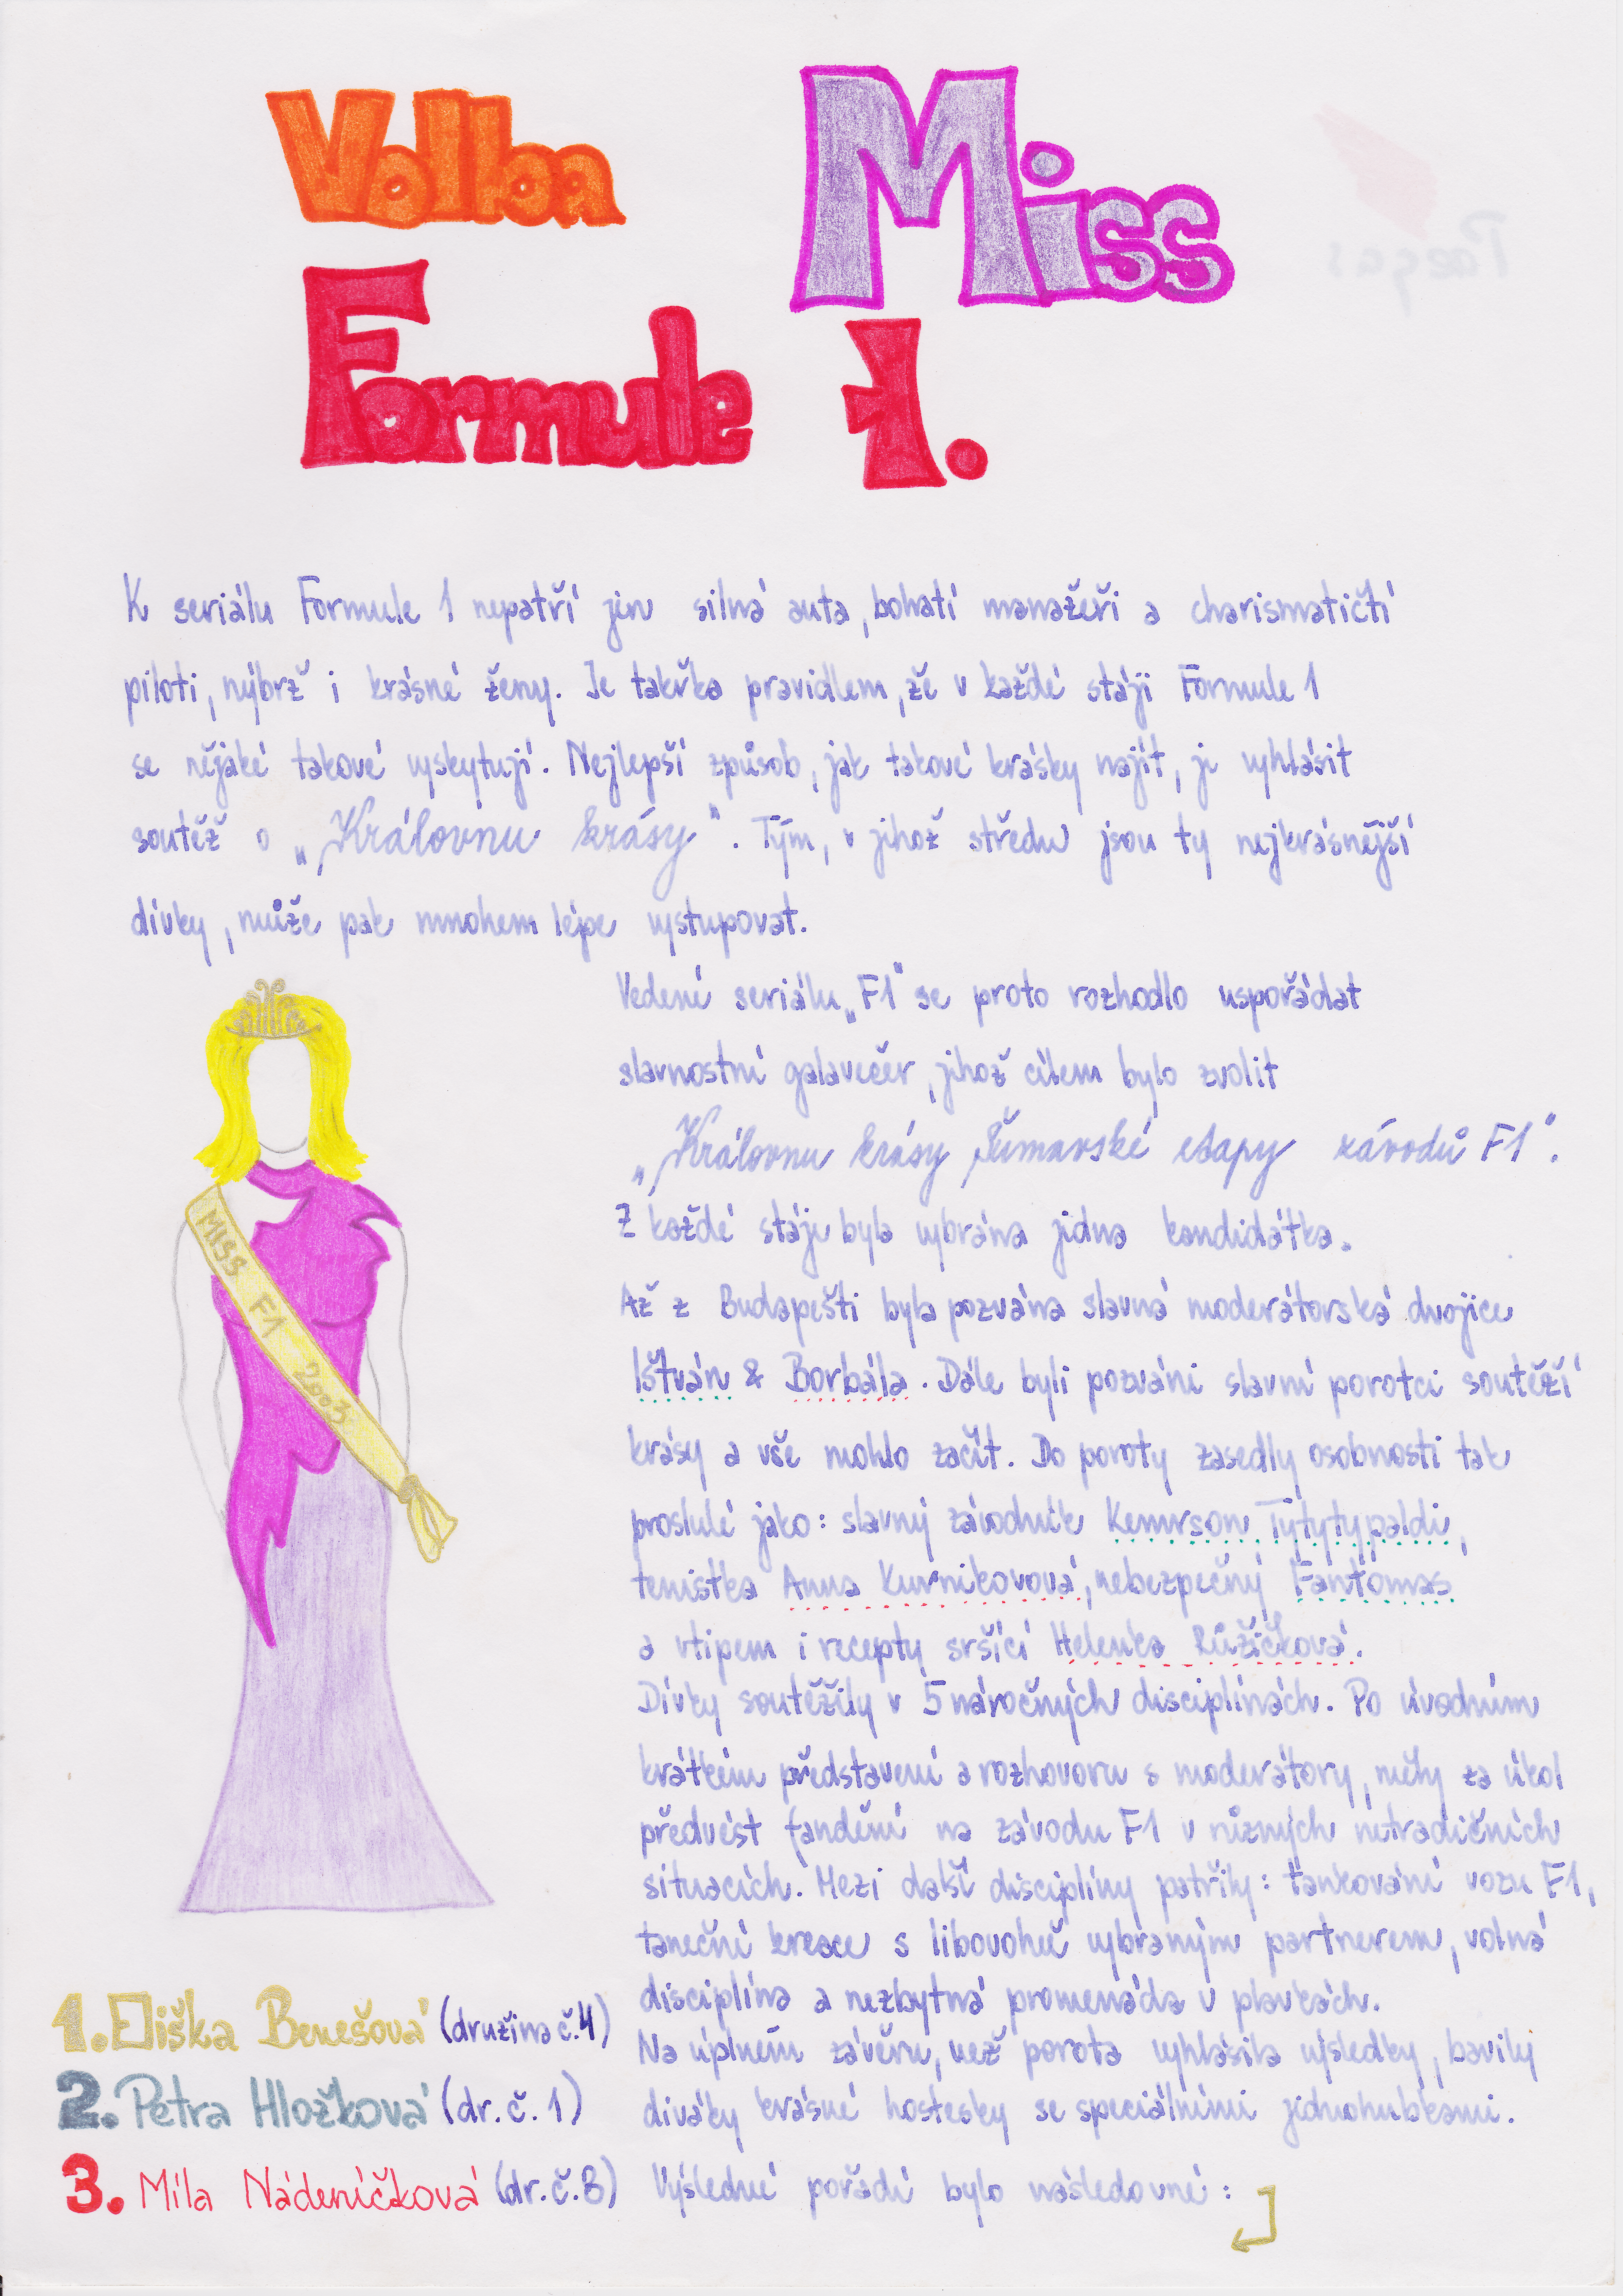 Volba Miss
Formule 1.
K seriálu Formule 1 nepatří jen silná auta, bohatí manažeři a charismatičtí
piloti, nýbrž i krásné ženy. Je takřka pravidlem, že v každé stáji Formule 1
se nějaké takové vyskytují. Nejlepší způsob, jak takové krásky najít, je vyhlásit
soutěž o „Královnu krásy". Tým, v jehož středu jsou ty nejkrásnější
dívky, může pak mnohem lépe vystupovat.
Vedení seriálu „F1" se proto rozhodlo uspořádat
slavnostní galavečer, jehož cílem bylo zvolit
„Královnu krásy Šumavské etapy závodů F1".
Z každé stáje byla vybrána jedna kandidátka.
Až z Budapešti byla pozvána slavná moderátorská dvojice
Ištván & Borbála. Dále byli pozváni slavní porotci soutěží
krásy a vše mohlo začít. Do poroty zasedly osobnosti tak
proslulé jako: slavný závodník Kemrson Tytytypaldi,
tenistka Anna Kurnikovová, nebezpečný Fantomas
a vtipem i recepty sršící Helenka Růžičková.
Dívky soutěžily v 5 náročných disciplínách. Po úvodním
krátkém představení a rozhovoru s moderátory, měly za úkol
předvést fandění na závodu F1 v různých netradičních
situacích. Mezi další disciplíny patřily: tankování vozu F1,
taneční kreace s libovolně vybraným partnerem, volná
disciplína a nezbytná promenáda v plavkách.
Na úplném závěru, než porota vyhlásila výsledky, bavily
diváky krásné hostesky se speciálními jednohubkami.
Výsledné pořadí bylo následovné:
MISS F1 2003
1. Eliška Benešová (družina č.4)
2. Petra Hložková (dr. č. 1)
3. Míla Nádeníčková (dr. č. 3)
Paegas